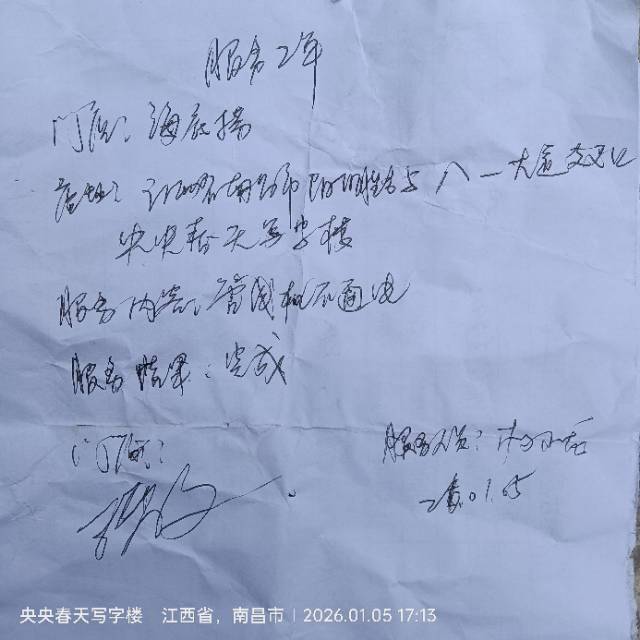 服务工单
门店：海底捞
店址：江西省南昌市阳明路与八一大道交汇处
央央春天写字楼
服务内容：管线机不通电
服务结果：完成
门店：
服务人员：
26.01.05
央央春天写字楼 江西省，南昌市 | 2026.01.05 17:13